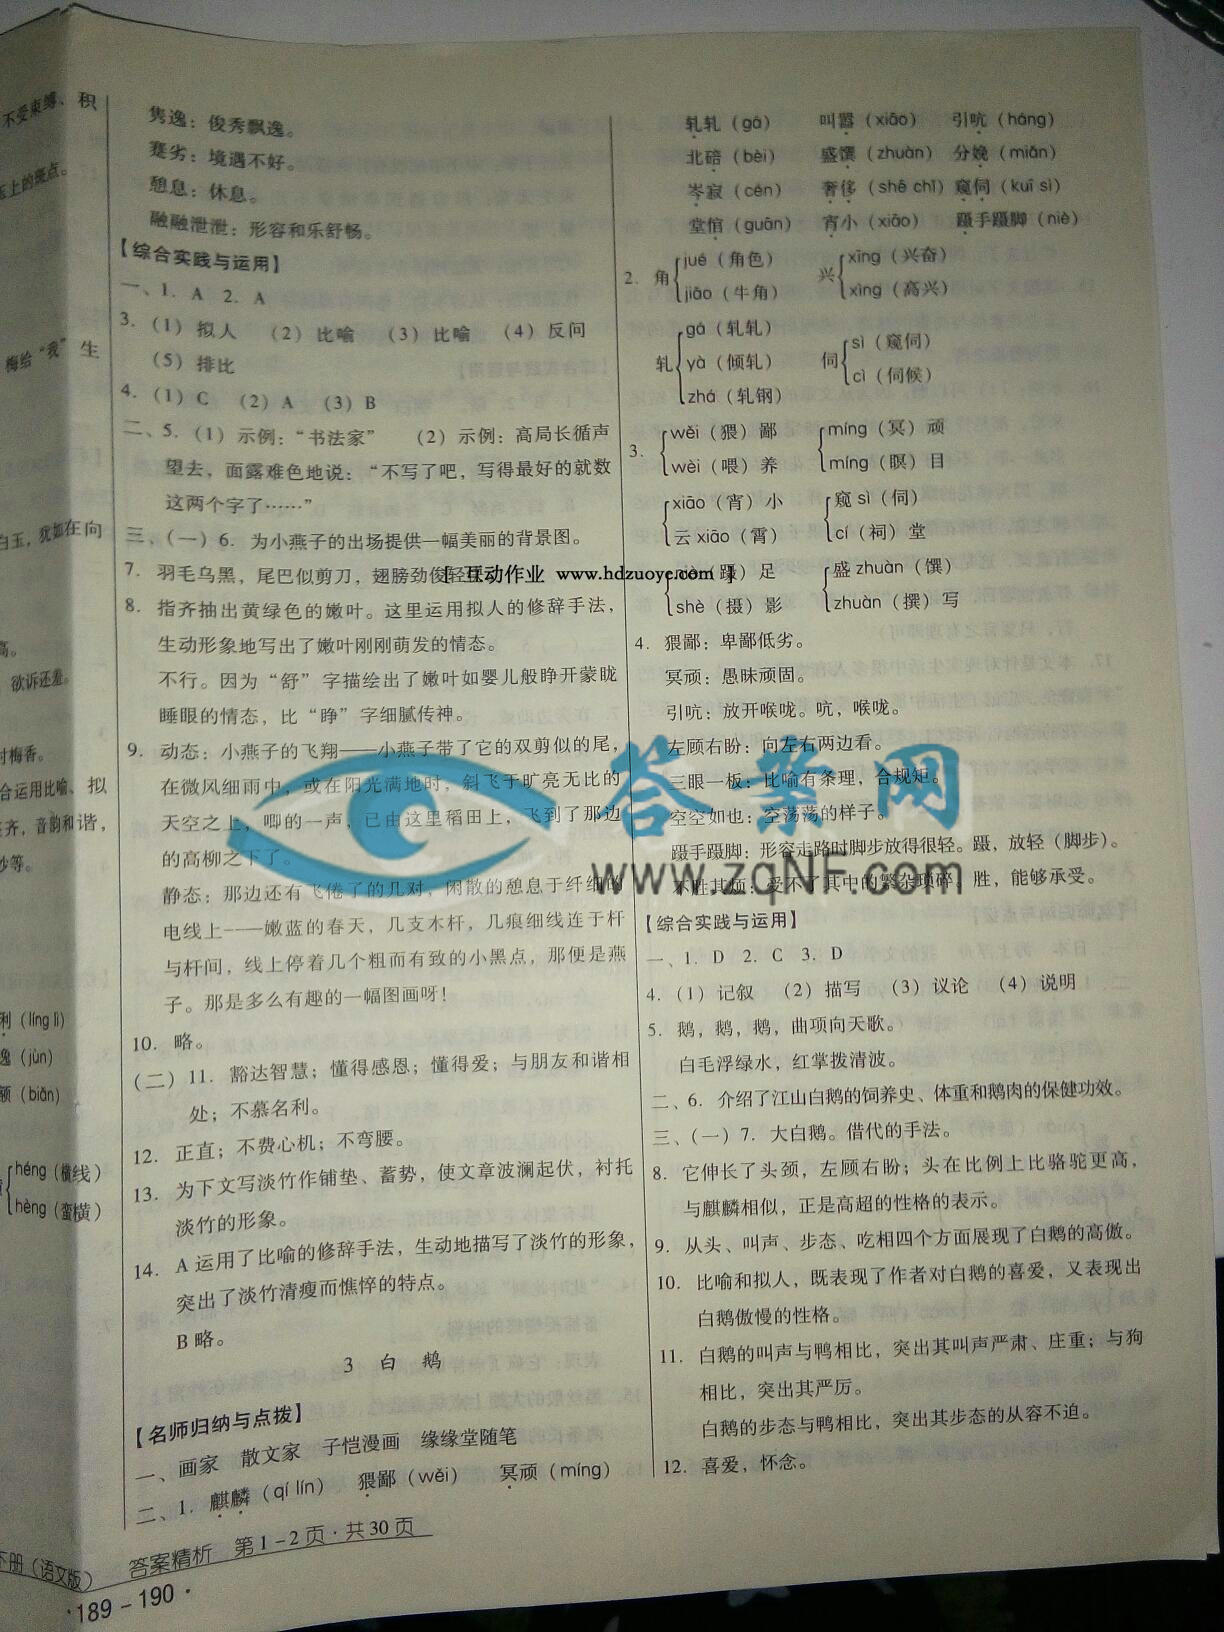 不受束缚、积
上的斑点。
梅给“我”生
白玉，犹如在向
高。
欲诉还羞。
时梅香。
合运用比喻、拟
齐，音韵和谐，
妙等。
利（líng lì）
逸（jùn）
颐（biǎn）
héng（横线）
hèng（蛮横）
下册（语文版）
隽逸：俊秀飘逸。
蹇劣：境遇不好。
憩息：休息。
融融泄泄：形容和乐舒畅。
【综合实践与运用】
一、1. A 2. A
3.（1）拟人 （2）比喻 （3）比喻 （4）反问
（5）排比
4.（1）C （2）A （3）B
二、5.（1）示例：“书法家” （2）示例：高局长循声
望去，面露难色地说：“不写了吧，写得最好的就数
这两个字了……”
三、（一）6. 为小燕子的出场提供一幅美丽的背景图。
7. 羽毛乌黑，尾巴似剪刀，翅膀劲俊轻
【 互动作业 www.hdzuoye.com 】
8. 指齐抽出黄绿色的嫩叶。这里运用拟人的修辞手法，
生动形象地写出了嫩叶刚刚萌发的情态。
不行。因为“舒”字描绘出了嫩叶如婴儿般睁开蒙眬
睡眼的情态，比“睁”字细腻传神。
9. 动态：小燕子的飞翔——小燕子带了它的双剪似的尾，
在微风细雨中，或在阳光满地时，斜飞于旷亮无比的
天空之上，唧的一声，已由这里稻田上，飞到了那边
的高柳之下了。
静态：那边还有飞倦了的几对，闲散的憩息于纤细的
电线上——嫩蓝的春天，几支木杆，几痕细线连于杆
与杆间，线上停着几个粗而有致的小黑点，那便是燕
子。那是多么有趣的一幅图画呀！
10. 略。
（二）11. 豁达智慧；懂得感恩；懂得爱；与朋友和谐相
处；不慕名利。
12. 正直；不费心机；不弯腰。
13. 为下文写淡竹作铺垫、蓄势，使文章波澜起伏，衬托
淡竹的形象。
14. A 运用了比喻的修辞手法，生动地描写了淡竹的形象，
突出了淡竹清瘦而憔悴的特点。
B 略。
3 白 鹅
【名师归纳与点拨】
一、画家 散文家 子恺漫画 缘缘堂随笔
二、1. 麒麟（qí lín） 猥鄙（wěi） 冥顽（míng）
答案精析 第1－2页·共30页
·189－190·
轧轧（gá） 叫嚣（xiāo） 引吭（háng）
北碚（bèi） 盛馔（zhuàn） 分娩（miǎn）
岑寂（cén） 奢侈（shē chǐ） 窥伺（kuī sì）
堂倌（guān） 宵小（xiāo） 蹑手蹑脚（niè）
2. 角 jué（角色） jiǎo（牛角） 兴 xīng（兴奋） xìng（高兴）
轧 gá（轧轧） yà（倾轧） zhá（轧钢） 伺 sì（窥伺） cì（伺候）
3. wěi（猥）鄙 wèi（喂）养 míng（冥）顽 míng（瞑）目
xiāo（宵）小 云 xiāo（霄） 窥 sì（伺） cí（祠）堂
（蹑）足 shè（摄）影 盛 zhuàn（馔） zhuàn（撰）写
4. 猥鄙：卑鄙低劣。
冥顽：愚昧顽固。
引吭：放开喉咙。吭，喉咙。
左顾右盼：向左右两边看。
三眼一板：比喻有条理，合规矩。
空空如也：空荡荡的样子。
蹑手蹑脚：形容走路时脚步放得很轻。蹑，放轻（脚步）。
不胜其烦：受不了其中的繁杂琐碎。胜，能够承受。
【综合实践与运用】
一、1. D 2. C 3. D
4.（1）记叙 （2）描写 （3）议论 （4）说明
5. 鹅，鹅，鹅，曲项向天歌。
白毛浮绿水，红掌拨清波。
二、6. 介绍了江山白鹅的饲养史、体重和鹅肉的保健功效。
三、（一）7. 大白鹅。借代的手法。
8. 它伸长了头颈，左顾右盼；头在比例上比骆驼更高，
与麒麟相似，正是高超的性格的表示。
9. 从头、叫声、步态、吃相四个方面展现了白鹅的高傲。
10. 比喻和拟人，既表现了作者对白鹅的喜爱，又表现出
白鹅傲慢的性格。
11. 白鹅的叫声与鸭相比，突出其叫声严肃、庄重；与狗
相比，突出其严厉。
白鹅的步态与鸭相比，突出其步态的从容不迫。
12. 喜爱，怀念。
答案网
www.zqNF.com